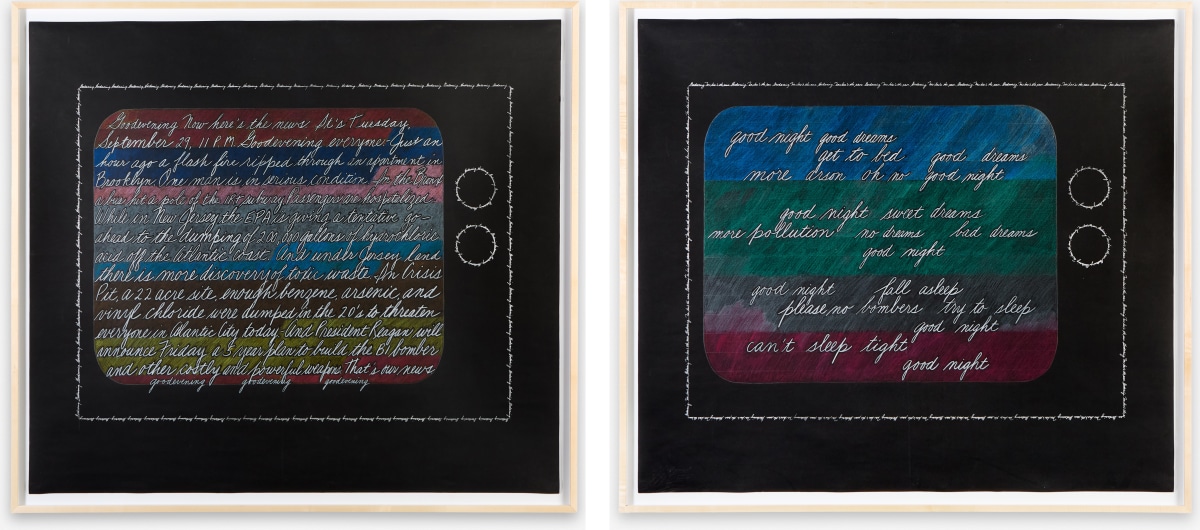 Goodevening Now here's the news. It's Tuesday,
September 29, 11 P.M. Goodevening everyone-Just an
hour ago a flash fire ripped through an apartment in
Brooklyn. One man is in serious condition. In the Bronx
a bus hit a pole of the IRT subway. Passengers are hospitalized.
While in New Jersey the EPA is giving a tentative go-
ahead to the dumping of 200,000 gallons of hydrochloric
acid off the Atlantic Coast. And under Jersey land
there is more discovery of toxic waste. In Crisis
Pit, a 22 acre site, enough benzene, arsenic, and
vinyl chloride were dumped in the 20's to threaten
everyone in Atlantic City today. And President Reagan will
announce Friday a 5 year plan to build the B1 bomber
and other costly and powerful weapons. That's our news
goodevening goodevening goodevening
good night good dreams
get to bed good dreams
more arson oh no good night
good night sweet dreams
more pollution no dreams bad dreams
good night
good night fall asleep
please, no bombers try to sleep
good night
can't sleep tight
good night